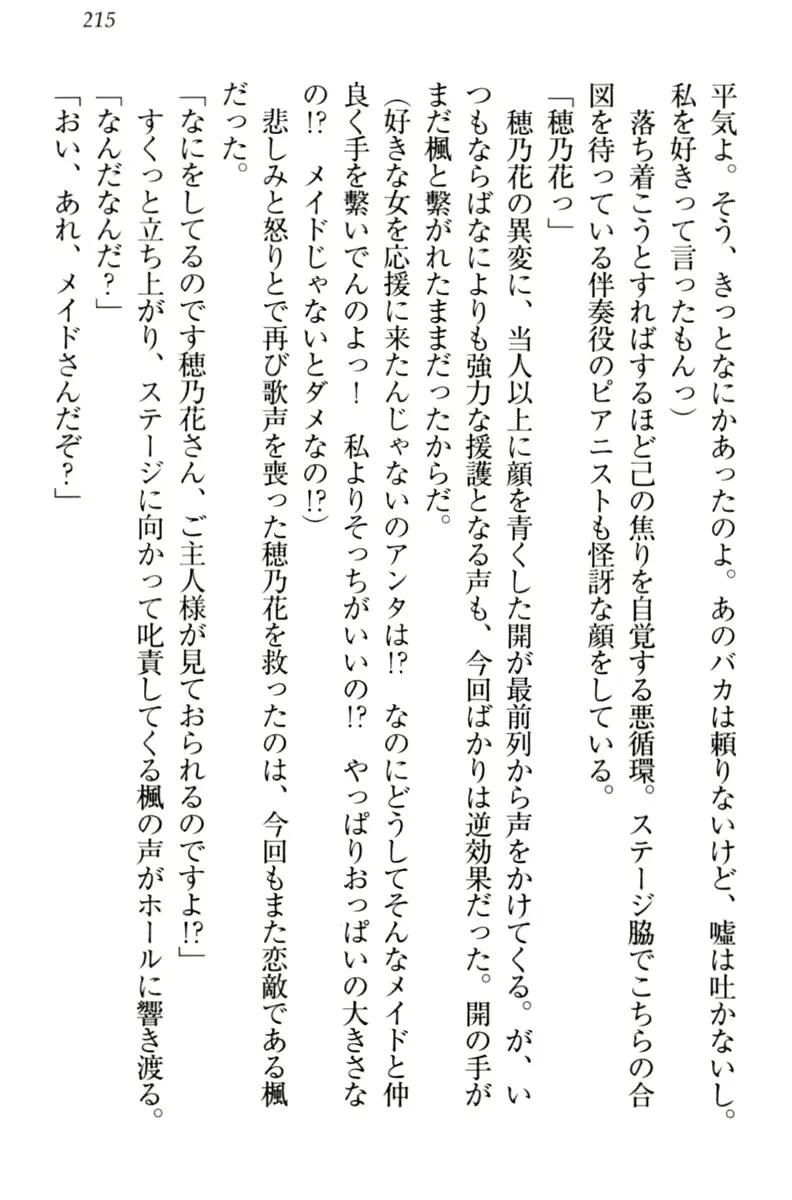 215
平気よ。そう、きっとなにかあったのよ。あのバカは頼りないけど、嘘は吐かないし。
私を好きって言ったもんっ）
　落ち着こうとすればするほど己の焦りを自覚する悪循環。ステージ脇でこちらの合
図を待っている伴奏役のピアニストも怪訝な顔をしている。
「穂乃花っ」
　穂乃花の異変に、当人以上に顔を青くした開が最前列から声をかけてくる。が、い
つもならばなによりも強力な援護となる声も、今回ばかりは逆効果だった。開の手が
まだ楓と繋がれたままだったからだ。
（好きな女を応援に来たんじゃないのアンタは!?　なのにどうしてそんなメイドと仲
良く手を繋いでんのよっ！　私よりそっちがいいの!?　やっぱりおっぱいの大きさな
の!?　メイドじゃないとダメなの!?）
　悲しみと怒りとで再び歌声を喪った穂乃花を救ったのは、今回もまた恋敵である楓
だった。
「なにをしてるのです穂乃花さん、ご主人様が見ておられるのですよ!?」
　すくっと立ち上がり、ステージに向かって叱責してくる楓の声がホールに響き渡る。
「なんだなんだ？」
「おい、あれ、メイドさんだぞ？」